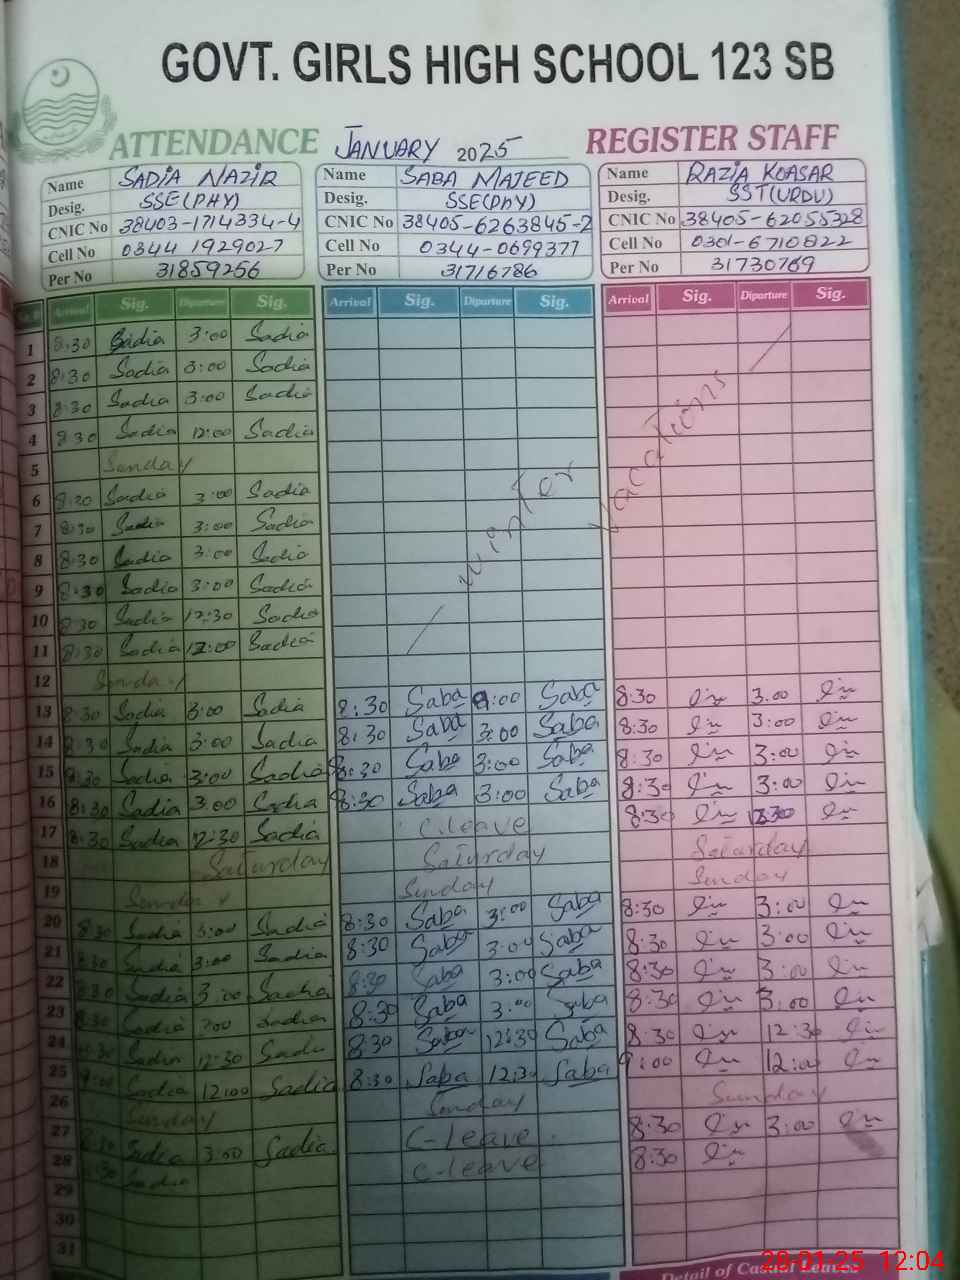 GOVT. GIRLS HIGH SCHOOL 123 SB
ATTENDANCE JANUARY 2025 REGISTER STAFF
Name SADIA NAZIR Name SABA MAJEED Name RAZIA KOASAR
Desig. SSE(PHY) Desig. SSE(PHY) Desig. SST(URDU)
CNIC No 38403-1714334-4 CNIC No 38405-6263845-2 CNIC No 38405-62055328
Cell No 0344 1929027 Cell No 0344-0699377 Cell No 0301-6710822
Per No 31859256 Per No 31716786 Per No 31730769
Arrival Sig. Diparture Sig. Arrival Sig. Diparture Sig. Arrival Sig. Diparture Sig.
1 8:30 Sadia 3:00 Sadia
2 8:30 Sadia 3:00 Sadia
3 8:30 Sadia 3:00 Sadia
4 8:30 Sadia 12:00 Sadia
5 Sunday
6 8:30 Sadia 3:00 Sadia
7 8:30 Sadia 3:00 Sadia
8 8:30 Sadia 3:00 Sadia
9 8:30 Sadia 3:00 Sadia
10 8:30 Sadia 12:30 Sadia
11 8:30 Sadia 12:00 Sadia
winter vacations
12 Sunday
13 8:30 Sadia 3:00 Sadia 8:30 Saba :00 Saba 8:30 3:00
14 8:30 Sadia 3:00 Sadia 8:30 Saba 3:00 Saba 8:30 3:00
15 8:30 Sadia 3:00 Sadia 8:30 Saba 3:00 Saba 8:30 3:00
16 8:30 Sadia 3:00 Sadia 8:30 Saba 3:00 Saba 8:30 3:00
17 8:30 Sadia 12:30 Sadia C.leave 8:30
18 Saturday Saturday Saturday
19 Sunday Sunday Sunday
20 8:30 Sadia 3:00 Sadia 8:30 Saba 3:00 Saba 8:30 3:00
21 8:30 Sadia 3:00 Sadia 8:30 Saba 3:00 Saba 8:30 3:00
22 8:30 Sadia 3:00 Sadia 8:30 Saba 3:00 Saba 8:30 3:00
23 8:30 Sadia 3:00 Sadia 8:30 Saba 3:00 Saba 8:30 3:00
24 8:30 Sadia 12:30 Sadia 8:30 Saba 12:30 Saba 8:30 12:30
25 9:00 Sadia 12:00 Sadia 8:30 Saba 12:30 Saba 9:00 12:00
26 Sunday Sunday Sunday
27 8:30 Sadia 3:00 Sadia C-leave 8:30 3:00
28 8:30 Sadia C-leave 8:30
29
30
31
Detail of Casual Leaves
29.01.25 12:04